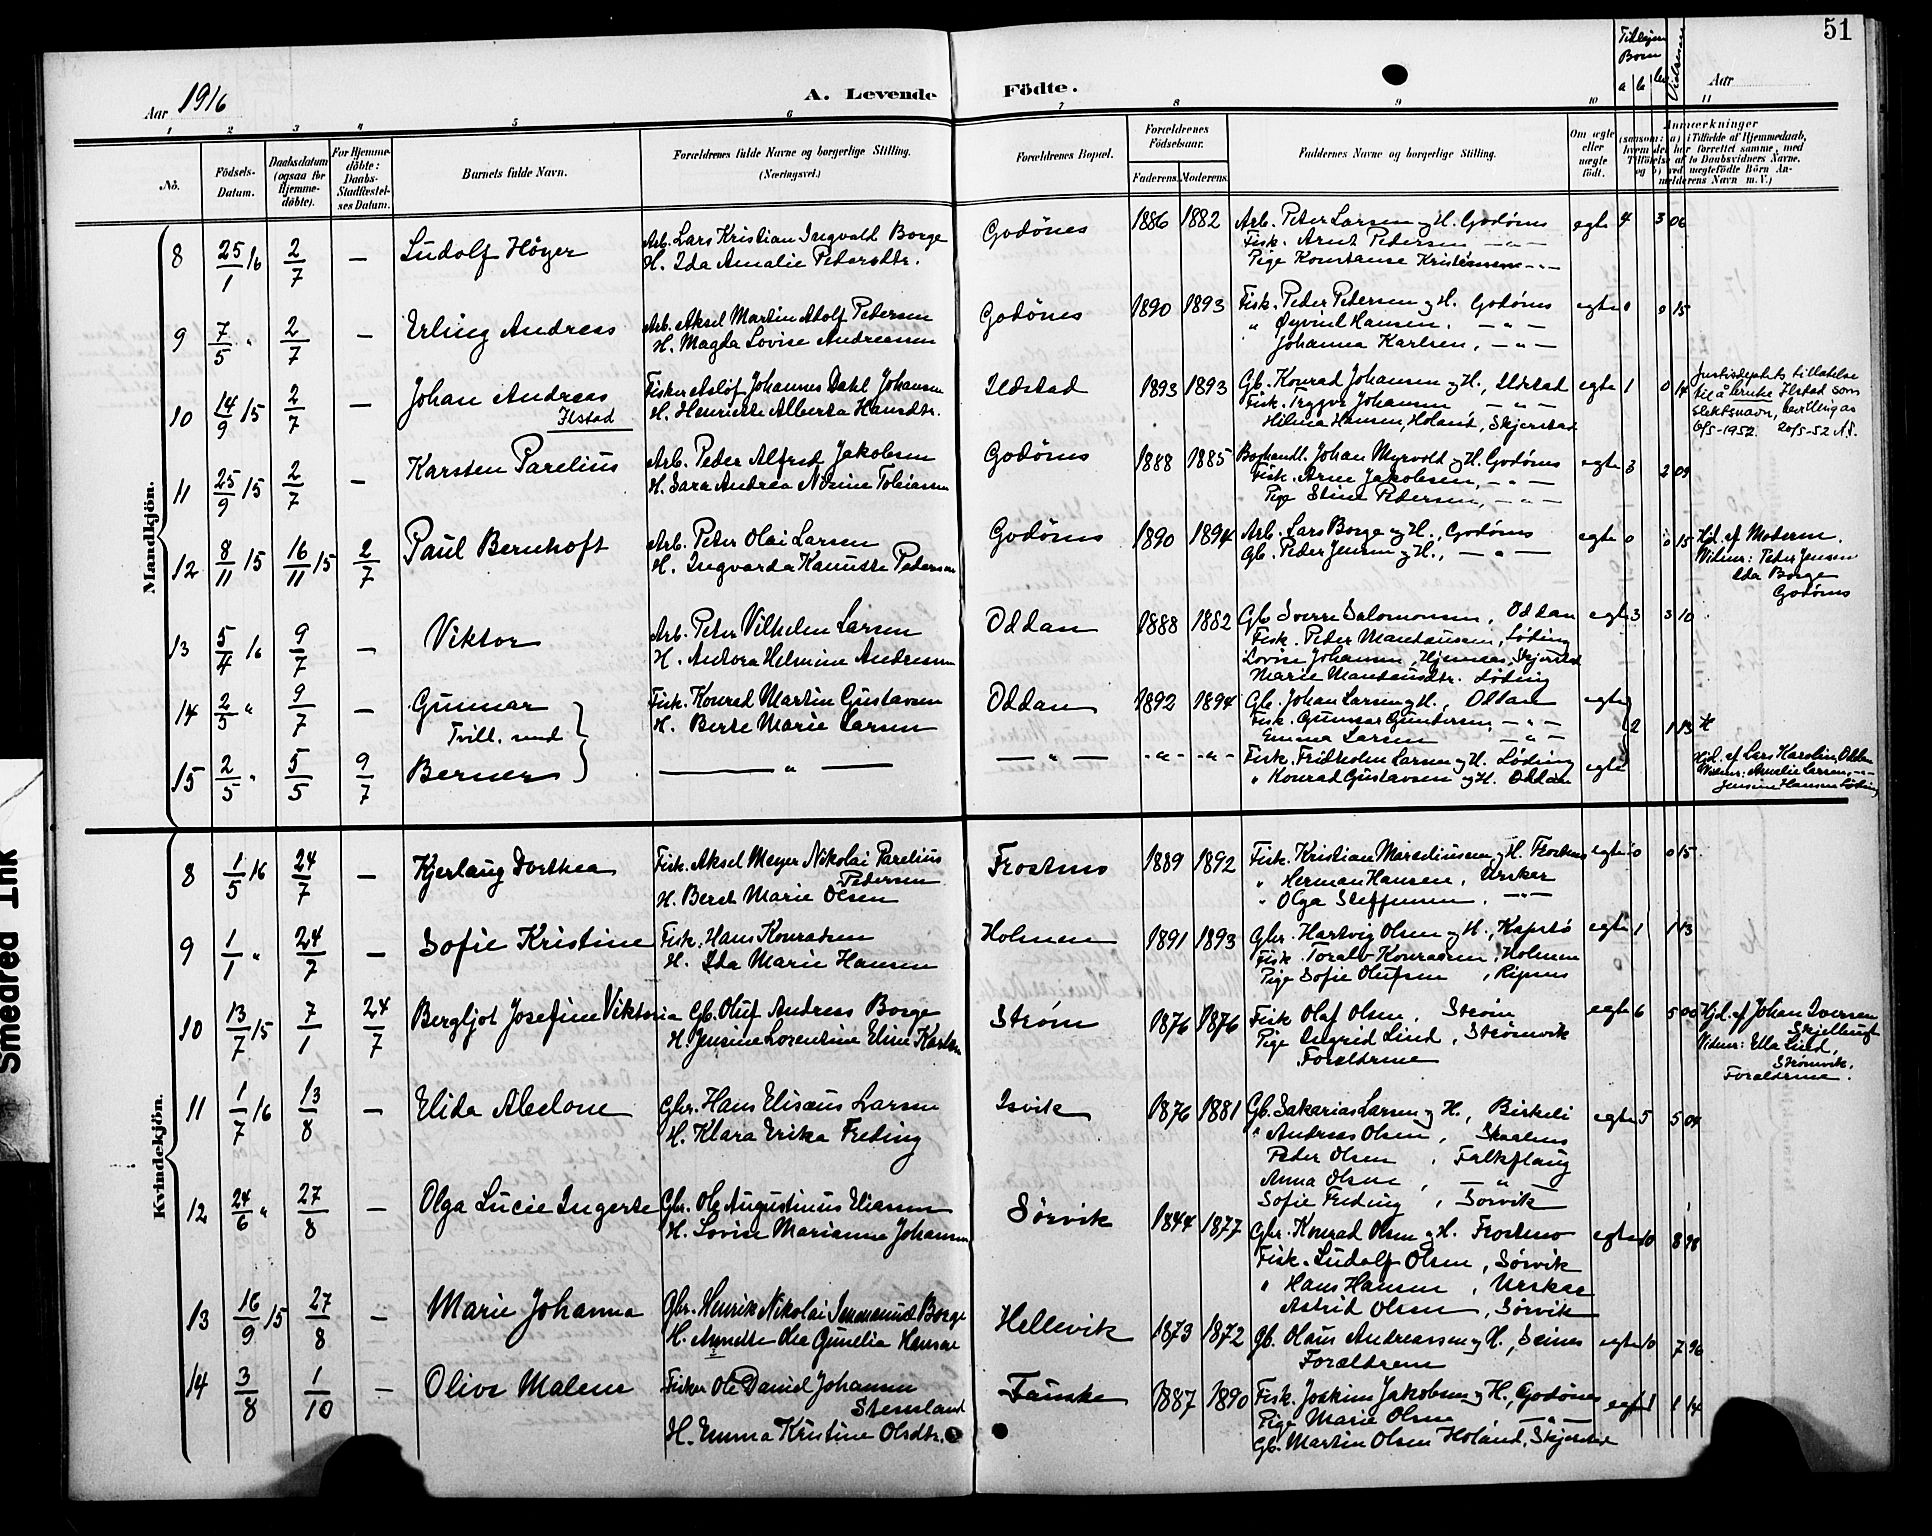 51
Aar 1916
A. Levende Födte.
Aar
1 2 3 4 5 6 7 8 9 10 11
No.
Födsels-Datum.
Daabsdatum (ogsaa for Hjemme-döbte).
For Hjemme-döbte: Daabs-Stadfæstel-ses Datum.
Barnets fulde Navn.
Forældrenes fulde Navne og borgerlige Stilling. (Næringsvei.)
Forældrenes Bopæl.
Forældrenes Födselsaar.
Faderens. Moderens.
Faddernes Navne og borgerlige Stilling.
Om ægte eller uægte födt.
Anmærkninger
Mandkjön.
8 25/1 16 2/7 — Ludolf Höyer
Arb. Lars Kristian Ingvald Borge
H. Ida Amalie Petersdtr.
Godönes 1886 1882
Arb. Peter Larsen og H. Godönes
Fisk. Arnt Pedersen — " —
Pige Konstanse Kristensen — " —
egte 4 3 06
9 7/5 " 2/7 — Erling Andreas
Arb. Aksel Martin Adolf Pedersen
H. Magda Lovise Andreasen
Godönes 1890 1893
Fisk. Peder Pedersen og H. Godönes
" Øyvind Hansen, — " —
Johanna Karlsen, — " —
egte 0 15
10 14/9 15 2/7 — Johan Andreas
Ilstad
Fisker Asløf Johannes Dahl Johansen
H. Henriette Alberta Hansdtr.
Ildstad 1893 1893
Gb. Konrad Johansen og H., Ildstad
Fisk. Trygve Johansen — " —
Hilma Hansen, Holand, Skjerstad
egte 1 0 14
Justisdeptets tillatelse
til å bruke Ilstad som
slektsnavn, bevilling av
6/5-1952. 20/5-52 A.S.
11 25/9 15 2/7 — Karsten Parelius
Arb. Peder Alfred Jakobsen
H. Sara Andrea Nosine Tobiassen
Godönes 1888 1885
Boghandl. Johan Myrvold og H. Godönes
Fisk. Arne Jakobsen, — " —
Pige Stina Pedersen, — " —
egte 3 2 09
12 8/11 15 16/11 15 2/7 Paul Bernhoft
Arb. Peter Olai Larsen
H. Ingvarda Hanutte Pedersen
Godönes 1890 1894
Arb. Lars Borge og H., Godönes
Gb. Peder Jensen og H., — " —
egte 0 0 15
Hjd. af Moderen.
Vidner: Peder Jensen
Ida Borge
Godönes
13 5/4 16 9/7 — Viktor
Arb. Peter Vilhelm Larsen
H. Antora Helmine Andreasen
Oddan 1888 1882
Gb. Sverre Salomonsen, Oddan
Fisk. Peder Mandausen, Löding
Lovise Johansen, Hjemaas, Skjerstad
Marie Mandausdtr. Löding
egte 3 3 10
14 2/5 " 9/7 — Gunnar
Tvill. med
Fisk. Konrad Martin Gustavsen
H. Berte Marie Larsen
Oddan 1892 1894
Gb. Johan Larsen og H., Oddan
Fisk. Gunnar Gundersen, — " —
Emma Larsen — " —
egte 2 1 13
15 2/5 " 5/5 9/7 Berner
— " — — " — - " - - " -
Fisk. Fridtholm Larsen og H. Löding
" Konrad Gustavsen og H. Oddan
egte
Hjd. af Lars Karolin Oddan
Vidner: Amalie Larsen, — " —
Jensine Hansen Löding
Kvindekjön.
8 1/5 16 24/7 — Kjerlaug Dorthea
Fisk. Aksel Meyer Nikolai Parelius
Pedersen
H. Beret Marie Olsen
Frostmo 1889 1892
Fisk. Kristian Mareliussen og H. Frostmo
" Herman Hansen, Urskar
" Olga Steffensen, — " —
egte 0 0 15
9 1/1 " 24/7 — Sofie Kristine
Fisk. Hans Konradsen
H. Ida Marie Hansen
Holmen 1891 1893
Gbr. Hartvig Olsen og H., Kapstö
Fisk. Toralv Konradsen, Holmen
Pige Sofie Olufsen, Ripnes
egte 1 1 13
10 13/7 15 7/1 24/7 Bergljot Josefine Viktoria
Gb. Oluf Andreas Borge
H. Jensine Lorentine Elise Karlsen
Ström 1876 1876
Fisk Olaf Olsen, Ström
Pige Ingrid Lind, Strömvik
Forældrene
egte 6 5 00
Hjd. af Johan Iversen
Skjellbugt
Vidner: Ella Lind,
Strömvik.
Forældrene.
11 1/7 16 13/8 — Elida Abelone
Gbr. Hans Elisæus Larsen
H. Klara Erika Freding
Isvik 1876 1881
Gb. Sakarias Larsen og H., Birkeli
" Andreas Olsen,
Peder Olsen, Falkflaug
Anna Olsen, — " —
Sofie Freding, Sörvik
egte 5 5 04
12 24/6 " 27/8 — Olga Lucie Ingerte
Gbr. Ole Augustinus Eliassen
H. Lovise Marianne Johansen
Sörvik 1844 1877
Gbr. Konrad Olsen og H. Frostmo
Fisk. Ludolf Olsen, Sörvik
" Hans Hansen, Urskar
Astrid Olsen, Sörvik
egte 10 8 98
13 16/9 15 27/8 — Marie Johanna
Gbr. Henrik Nikolai Immanuel Borge
H. Anette Olea Gunelia Hansen
Hellevik 1873 1872
Gb. Olaus Andreassen og H., Seines
Forældrene
egte 10 7 96
14 3/8 1/10 — Olive Malene
Fisker Ole Daniel Johansen
Stemland
H. Emma Kristine Olsdtr.
Fauske 1887 1890
Fisk. Joakim Jakobsen og H., Godönes
Pige Marie Olsen — " —
Gb. Martin Olsen Holand, Skjerstad
egte 1 1 14
Smeared Ink